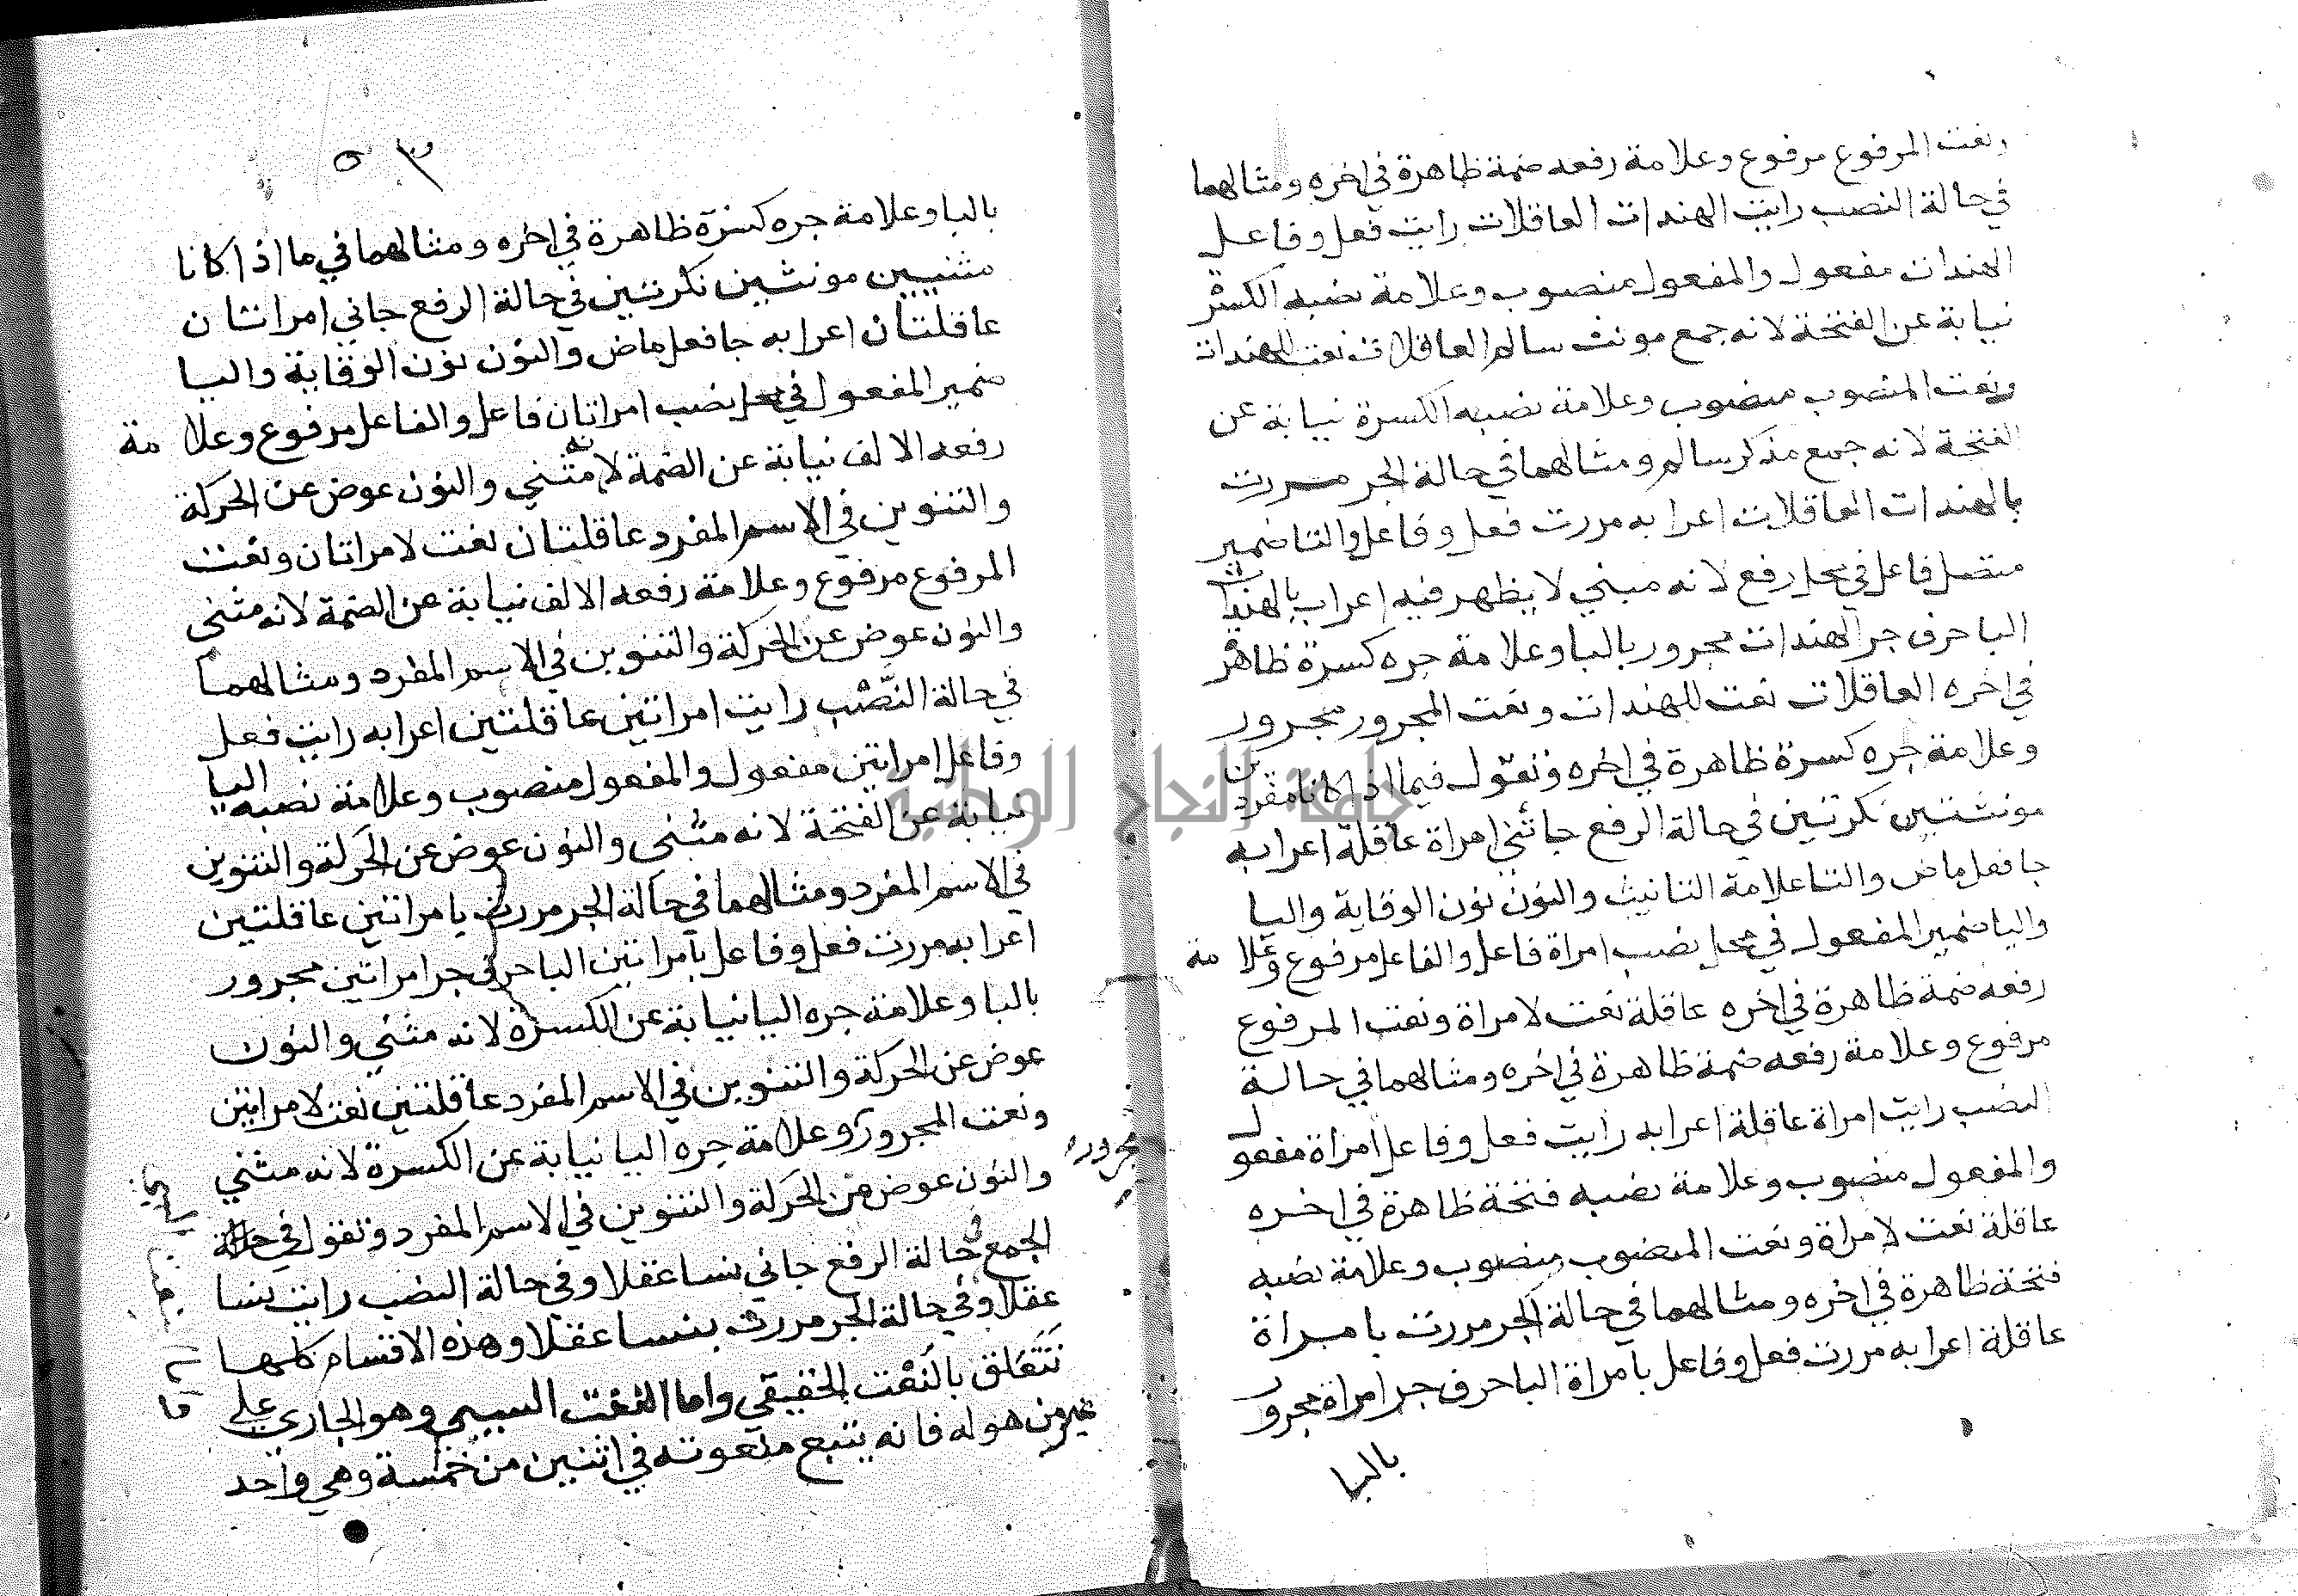 ونعت المرفوع مرفوع وعلامة رفعه ضمة ظاهرة في اخره ومثالهما
في حالة النصب رايت الهندات العاقلات رايت فعل وفاعل
الهندات مفعول والمفعول منصوب وعلامة نصبه الكسرة
نيابة عن الفتحة لانه جمع مونث سالم العاقلات نعت للهندات
ونعت المنصوب منصوب وعلامة نصبه الكسرة نيابة عن
الفتحة لانه جمع مذكر سالم ومثالهما في حالة الجر مررت
بالهندات العاقلات اعرابه مررت فعل وفاعل والتا ضمير
متصل فاعل في محل رفع لانه مبني لا يظهر فيه اعراب بالهندات
البا حرف جر الهندات مجرور بالبا وعلامة جره كسرة ظاهرة
في اخره العاقلات نعت للهندات ونعت المجرور مجرور
وعلامة جره كسرة ظاهرة في اخره وتقول فيما اذا كانا مفردين
مونثتين نكرتين في حالة الرفع جائتني امراة عاقلة اعرابه
جا فعل ماض والتا علامة التانيث والنون نون الوقاية واليا
واليا ضمير المفعول في محل نصب امراة فاعل والفاعل مرفوع وعلامة
رفعه ضمة ظاهرة في اخره عاقلة نعت لامراة ونعت المرفوع
مرفوع وعلامة رفعه ضمة ظاهرة في اخره ومثالهما في حالة
النصب رايت امراة عاقلة اعرابه رايت فعل وفاعل امراة مفعول
والمفعول منصوب وعلامة نصبه فتحة ظاهرة في اخره
عاقلة نعت لامراة ونعت المنصوب منصوب وعلامة نصبه
فتحة ظاهرة في اخره ومثالهما في حالة الجر مررت بامراة
عاقلة اعرابه مررت فعل وفاعل بامراة البا حرف جر امراة مجرور
بالبا
٥٣
بالبا وعلامة جره كسرة ظاهرة في اخره ومثالهما في ما اذا كانا
مثنيين مونثين نكرتين في حالة الرفع جاني امراتان
عاقلتان اعرابه جا فعل ماض والنون نون الوقاية واليا
ضمير المفعول في محل نصب امراتان فاعل والفاعل مرفوع وعلامة
رفعه الالف نيابة عن الضمة لانه مثني والنون عوض عن الحركة
والتنوين في الاسم المفرد عاقلتان نعت لامراتان ونعت
المرفوع مرفوع وعلامة رفعه الالف نيابة عن الضمة لانه مثني
والنون عوض عن الحركة والتنوين في الاسم المفرد ومثالهما
في حالة النصب رايت امراتين عاقلتين اعرابه رايت فعل
وفاعل امراتين مفعول والمفعول منصوب وعلامة نصبه اليا
نيابة عن الفتحة لانه مثني والنون عوض عن الحركة والتنوين
في الاسم المفرد ومثالهما في حالة الجر مررت بامراتين عاقلتين
اعرابه مررت فعل وفاعل بامراتين البا حرف جر امراتين مجرور
بالبا وعلامة جره اليا نيابة عن الكسرة لانه مثني والنون
عوض عن الحركة والتنوين في الاسم المفرد عاقلتين نعت لامراتين
ونعت المجرور وعلامة جره اليا نيابة عن الكسرة لانه مثني
مجرور
والنون عوض عن الحركة والتنوين في الاسم المفرد وتقول في حالة
الجمع في حالة الرفع جاني نسا عقلا وفي حالة النصب رايت نسا
عقلا وفي حالة الجر مررت بنسا عقلا وهذه الاقسام كلها
تتعلق بالنعت الحقيقي واما النعت السببي وهو الجاري علي
غير من هو له فانه يتبع منعوته في اثنين من خمسة وهي واحد
جامعة النجاح الوطنية